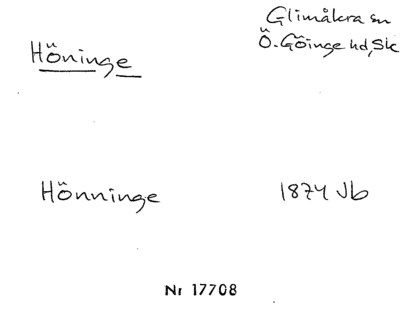 Glimåkra sn
Ö. Göinge hd, Sk
Höninge
Hönninge 1874 Jb
Nr 17708